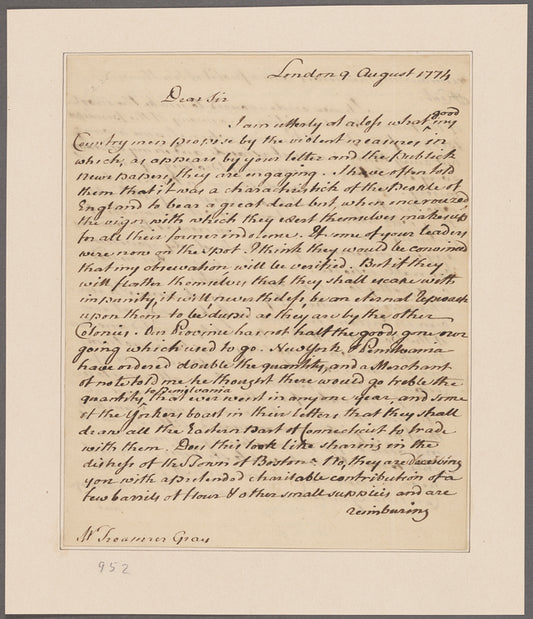 London 9 August 1774
Dear Sir
good
I am utterly at a loss what my
Countrymen propose by the violent measures in
which, as appears by your letter and the Publick
News papers, they are engaging. I have often told
them that it was a characteristick of the People of
England to bear a great deal but when once rouzed
the vigor with which they exert themselves makes up
for all their former indolence. If some of your leaders
were now on the spot I think they would be convinced
that my observation will be verified. But if they
will flatter themselves that they shall escape with
impunity, it will nevertheless be an eternal reproach
upon them to be duped as they are by the other
Colonies. Our Province has not half the goods gone nor
going which used to go. New York & Pensilvania
have ordered double the quantity, and a Merchant
of note told me he thought there would go treble the
to Pensilvania
quantity that ever went in any one year and some
of the Yorkers boast in their letters that they shall
draw all the Eastern part of Connecticut to trade
with them. Does this look like sharing in the
distress of the Town of Boston? No, they are deceiving
you with a pretended charitable contribution of a
few barrils of flour & other small supplies and are
reimbursing
Mr Treasurer Gray
952